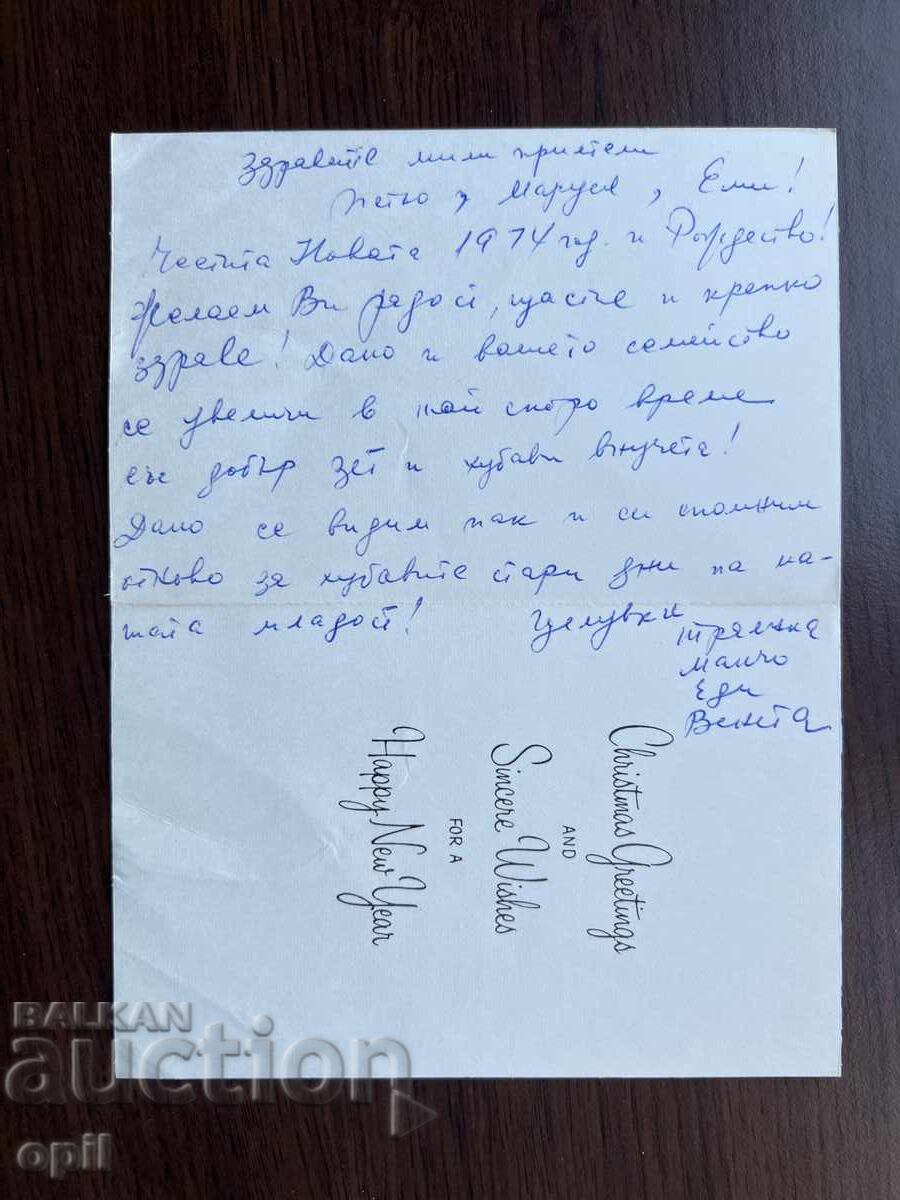 Здравейте мили приятели
Петю, Маруся, Еми!
Честита Новата 1974 год. и Рождество!
Желаем Ви радост, щастие и крепко
здраве! Дано и вашето семейство
се увеличи в най скоро време
със добър зет и хубави внучета!
Дано се видим пак и си спомним
отново за хубавите стари дни на на-
шата младост! Целувки
Манчо
Еди
Венета
Christmas Greetings
AND
Sincere Wishes
FOR A
Happy New Year
BALKAN
auction
opil